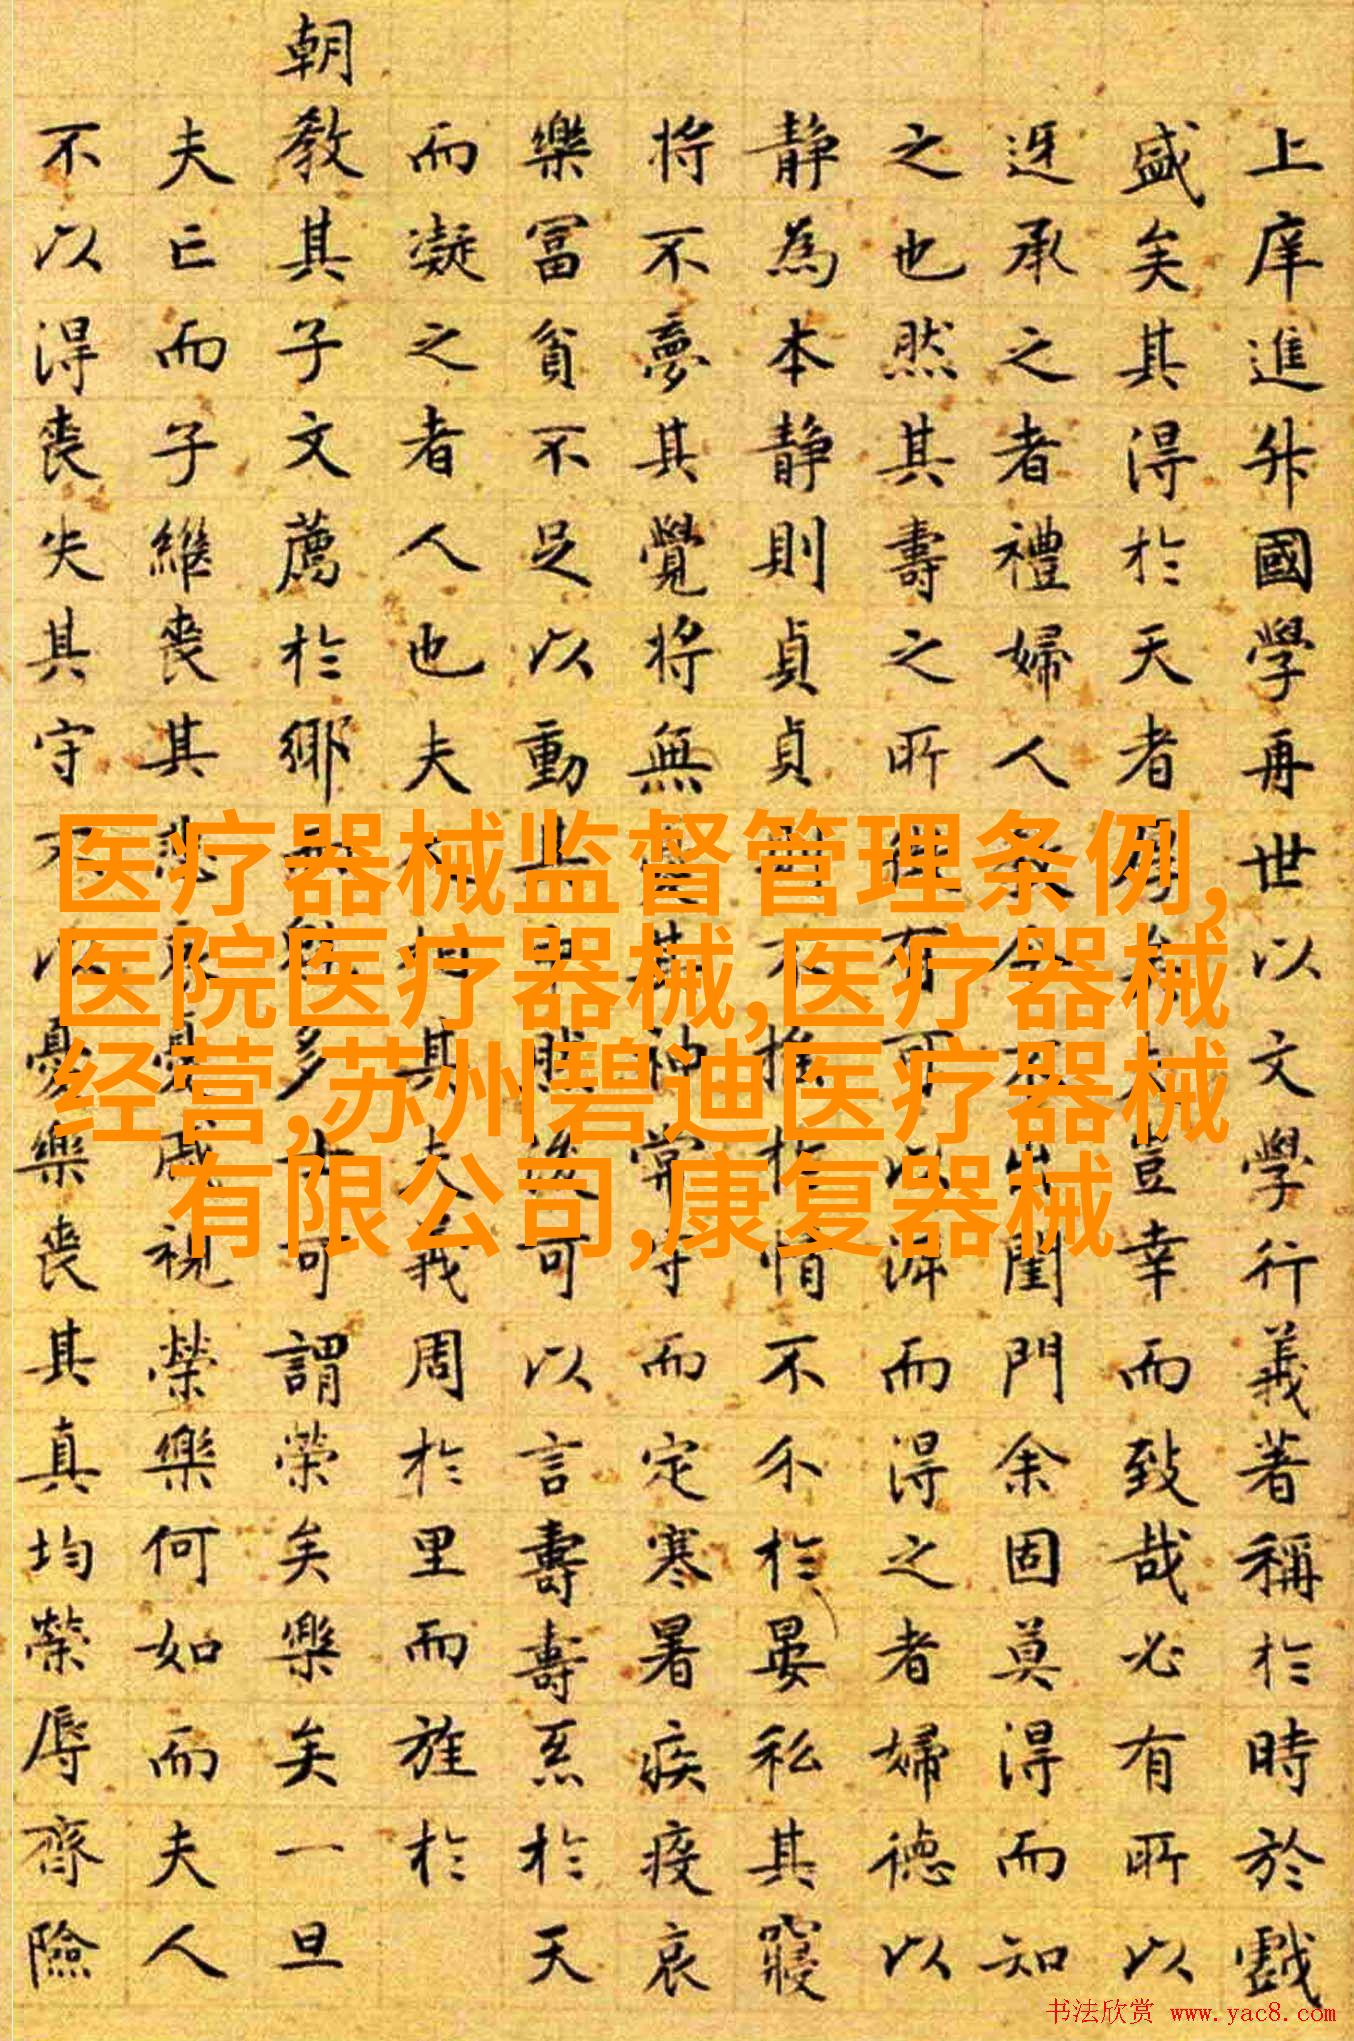 上庠進升國學再世以文學行義著稱於時於戲
盛矣其得於天者豈幸而致哉必有所以
迓承之者禮婦人教令不出閨門余固莫得而知
之也然其壽之所有可以而得之者婦德以
静為本静則貞貞則不於情不介於晏私其寢
將不夢其覺將無其神常守而定寒暑疾疫哀
樂富貧不足以動其中然後可以言壽壽系於天
而凝之者人也夫其夫義周於里而旌於
朝教其子文薦於鄉多士可謂榮矣樂矣一旦
夫亡而子繼喪其悲哀憂戚視榮樂何如而夫人
不以得喪失其守不以憂樂喪其真均榮辱齊險
医疗器械监督管理条例,
医院医疗器械,医疗器械
经营,苏州碧迪医疗器械
有限公司,康复器械
书法欣赏 www.yac8.com